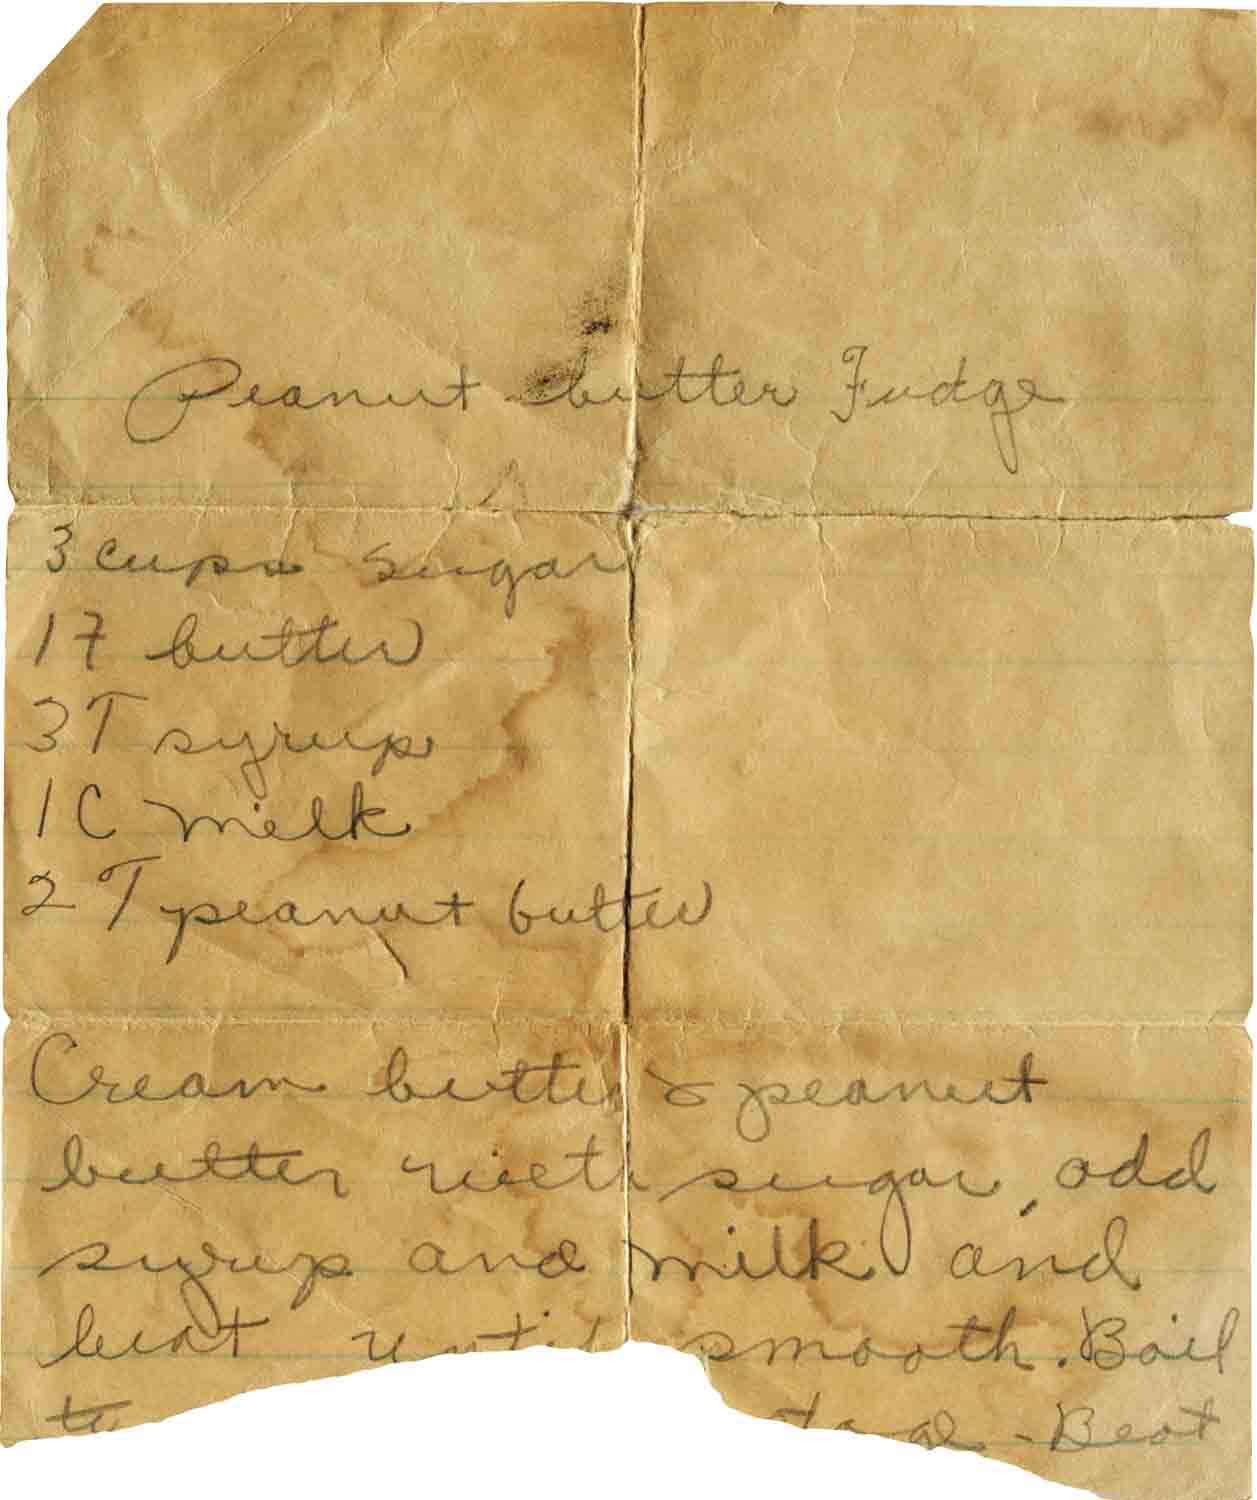 Peanut butter Fudge
3 cups sugar
1T butter
3T syrup
1C milk
2 T peanut butter
Cream butter & peanut
butter with sugar, add
syrup and milk and
beat until smooth. Boil
- Beat